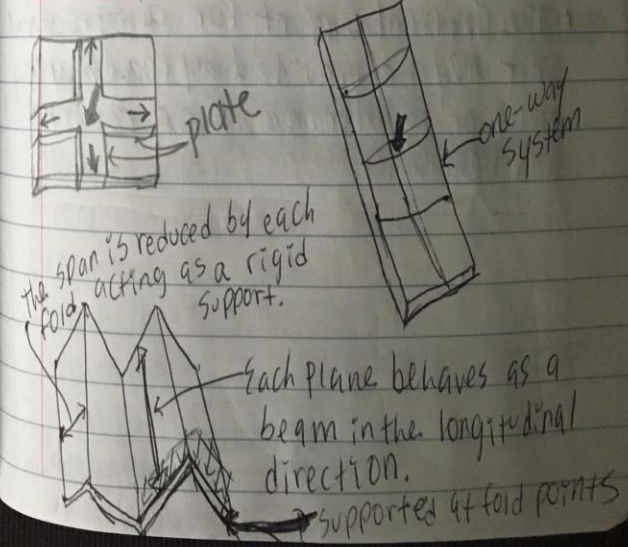 plate
one-way
system
the span is reduced by each
fold acting as a rigid
support.
Each plane behaves as a
beam in the longitudinal
direction.
supported at fold points